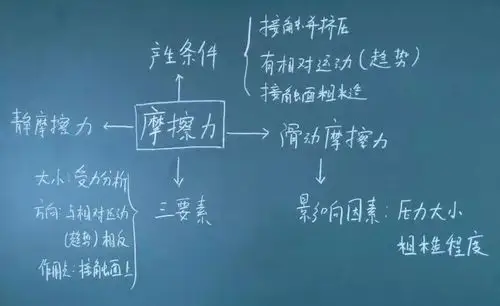 产生条件
接触并挤压
有相对运动(趋势)
接触面粗糙
静摩擦力
摩擦力
滑动摩擦力
大小:受力分析
方向:与相对运动
(趋势)相反
作用点:接触面上
三要素
影响因素:压力大小
粗糙程度